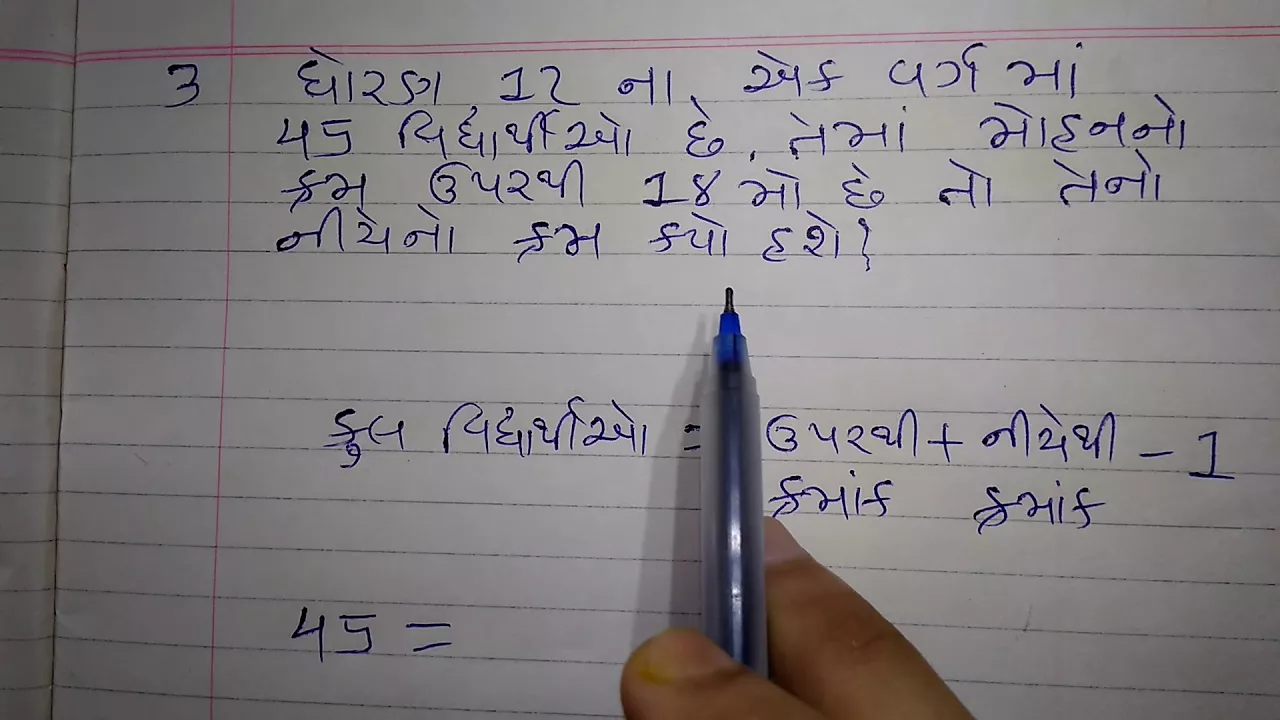 3 ધોરણ 12 ના એક વર્ગ માં
45 વિદ્યાર્થીઓ છે. તેમાં મોહનનો
ક્રમ ઉપરથી 18 મો છે તો તેનો
નીચેનો ક્રમ કયો હશે?
કુલ વિદ્યાર્થીઓ = ઉપરથી + નીચેથી - 1
ક્રમાંક ક્રમાંક
45 =